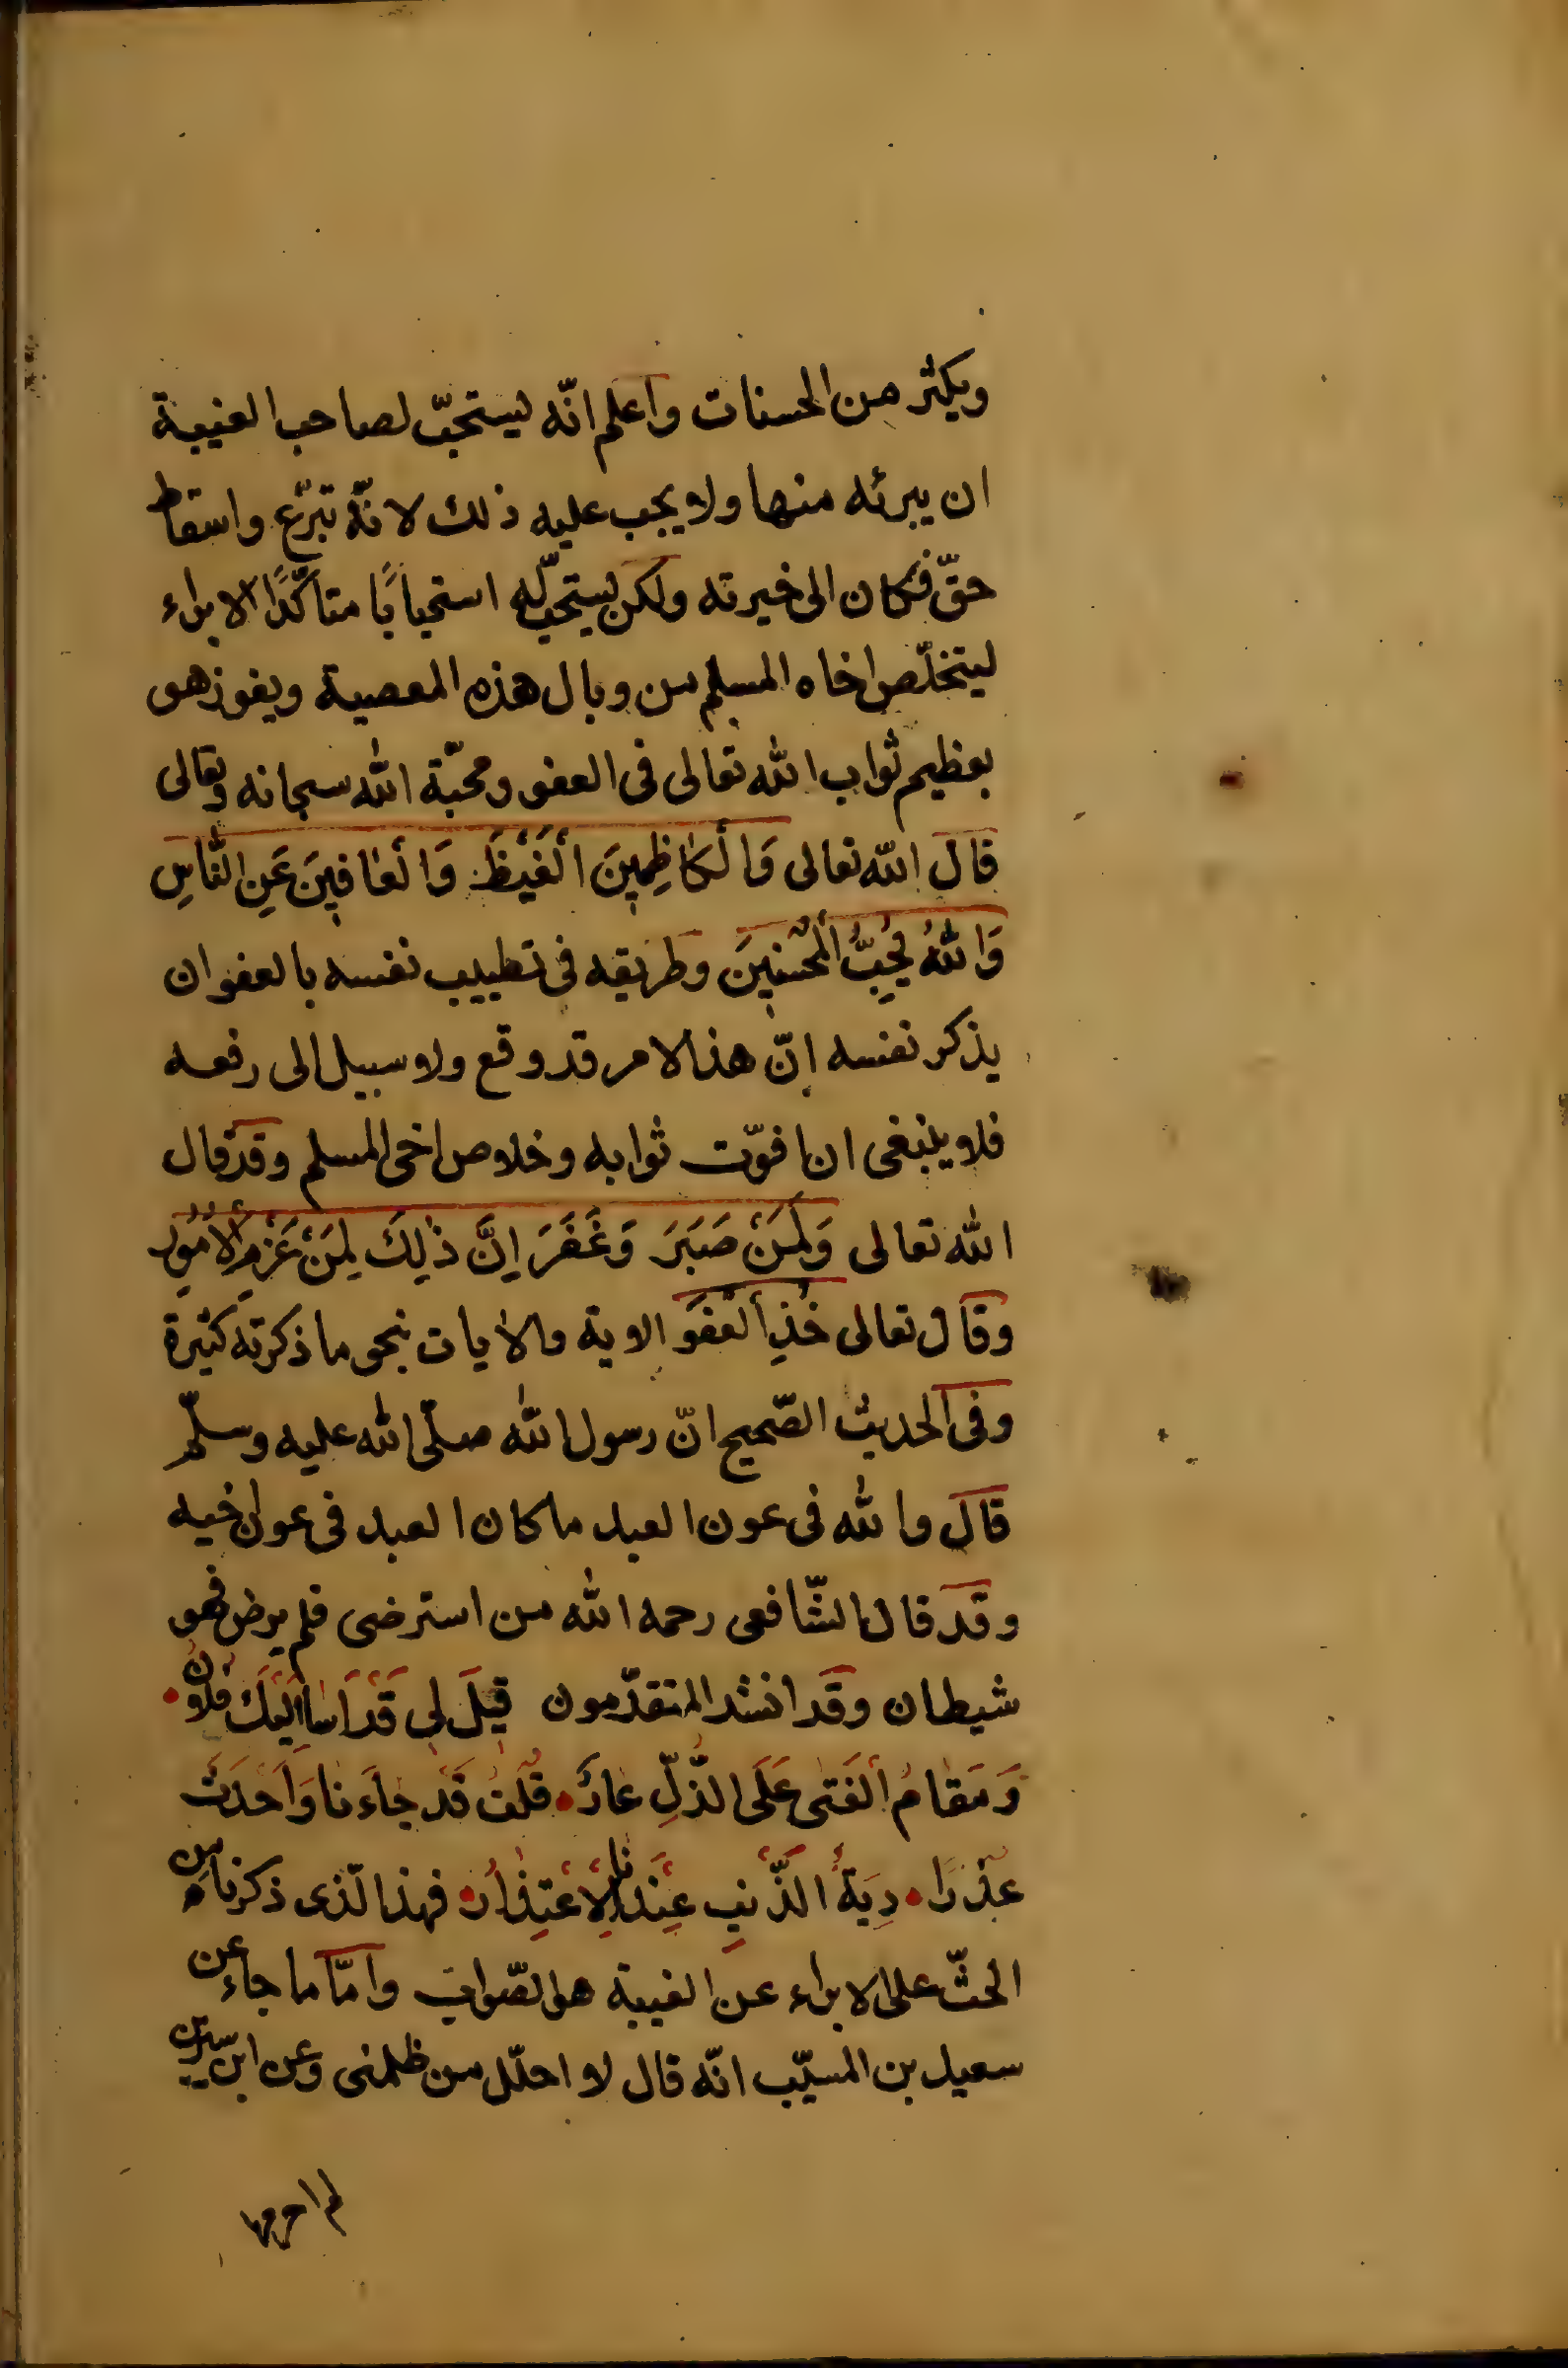 ويكثر من الحسنات واعلم انّه يستحبّ لصاحب الغيبة
ان يبرئه منها ولا يجب عليه ذلك لانّه تبرّع واسقاط
حقّ فكان الى خيرته ولكن يستحبّ له استحبابًا متاكّدًا الابراء
ليتخلّص اخاه المسلم من وبال هذه المعصية ويفوز هو
بعظيم ثواب الله تعالى فى العفو ومحبّة الله سبحانه وتعالى
قال الله تعالى وَالْكَاظِمِينَ الْغَيْظَ وَالْعَافِينَ عَنِ النَّاسِ
وَاللهُ يُحِبُّ الْمُحْسِنِينَ وطريقه فى تطييب نفسه بالعفو ان
يذكر نفسه انّ هذا الامر قد وقع ولا سبيل الى رفعه
فلا ينبغى ان افوّت ثوابه وخلاص اخى المسلم وقد قال
الله تعالى وَلَمَنْ صَبَرَ وَغَفَرَ اِنَّ ذٰلِكَ لَمِنْ عَزْمِ الْاُمُورِ
وقال تعالى خُذِ الْعَفْوَ الاية والايات بنحو ما ذكرته كثيرة
وفى الحديث الصّحيح انّ رسول الله صلّى الله عليه وسلّم
قال والله فى عون العبد ما كان العبد فى عون اخيه
وقد قال الشّافعى رحمه الله من استرضى فلم يرض فهو
شيطان وقد انشد المتقدّمون قِيلَ لِى قَدْ اَسَا اِلَيْكَ فُلَانٌ
وَمَقَامُ الْفَتٰى عَلَى الذُّلِّ عَارٌ قُلْتُ قَدْ جَاءَنَا وَاَحْدَثَ
عُذْرًا دِيَةُ الذَّنْبِ عِنْدَنَا الْاِعْتِذَارُ فهذا الّذى ذكرناه من
الحثّ على الابراء عن الغيبة هو الصّواب وامّا ما جاء عن
سعيد بن المسيّب انّه قال لا احلّل من ظلمنى وعن ابن سيرين
لم احرمها